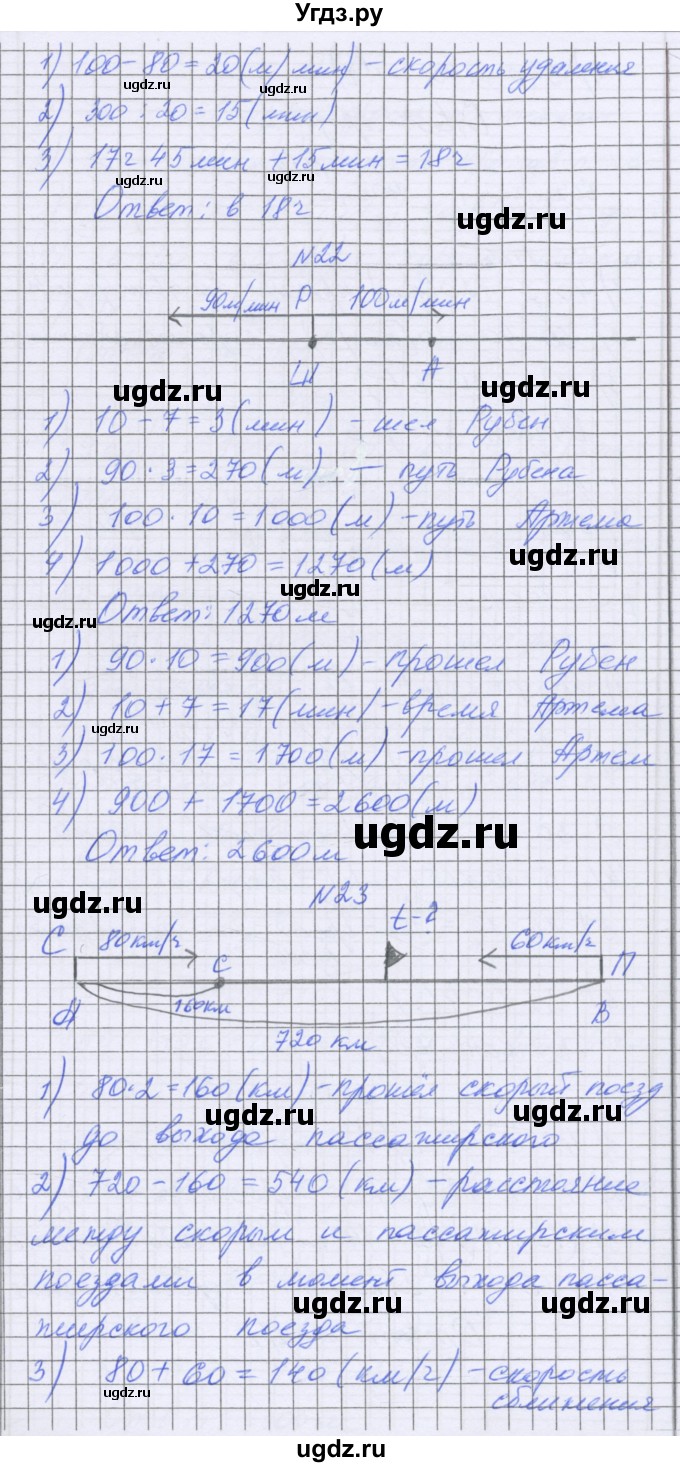 Угдз.ру
1) 100 - 80 = 20 (м/мин) - скорость удаления
ugdz.ru ugdz.ru
2) 300 : 20 = 15 (мин)
3) 17ч 45мин + 15мин = 18ч
ugdz.ru ugdz.ru
Ответ: в 18ч
ugdz.ru
№22
90м/мин Р 100м/мин
Ш А
ugdz.ru ugdz.ru
1) 10 - 7 = 3 (мин) - шел Рубен
2) 90 · 3 = 270 (м) - путь Рубена
3) 100 · 10 = 1000 (м) - путь Артема
ugdz.ru
4) 1000 + 270 = 1270 (м)
ugdz.ru
Ответ: 1270м
ugdz.ru
1) 90 · 10 = 900 (м) - прошел Рубен
2) 10 + 7 = 17 (мин) - время Артема
ugdz.ru
3) 100 · 17 = 1700 (м) - прошел Артем
4) 900 + 1700 = 2600 (м)
ugdz.ru
Ответ: 2600м
№23
ugdz.ru
t-?
С 80км/ч 60км/ч П
С
А 160км В
720 км
1) 80 · 2 = 160 (км) - прошёл скорый поезд
ugdz.ru ugdz.ru
до выхода пассажирского
2) 720 - 160 = 540 (км) - расстояние
между скорым и пассажирским
поездами в момент выхода пасса-
ugdz.ru ugdz.ru
жирского поезда
3) 80 + 60 = 140 (км/ч) - скорость
ugdz.ru
сближения
ugdz.ru